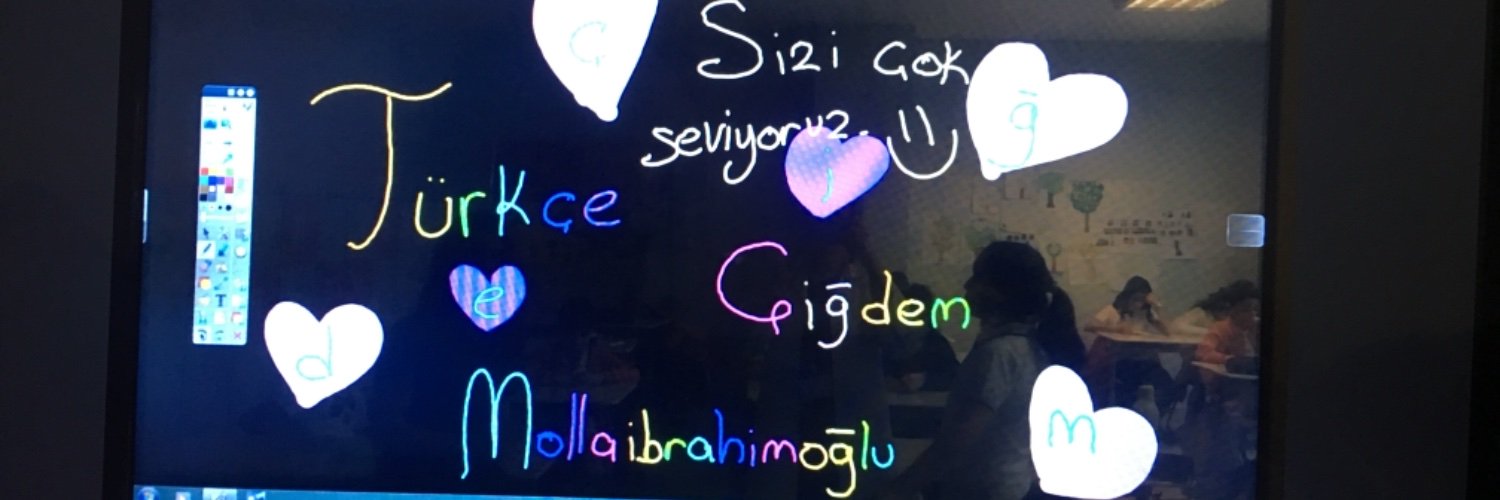 Sizi çok
seviyoruz.
Türkçe
Çiğdem
Mollaibrahimoğlu
Ç
i
ğ
d
e
m